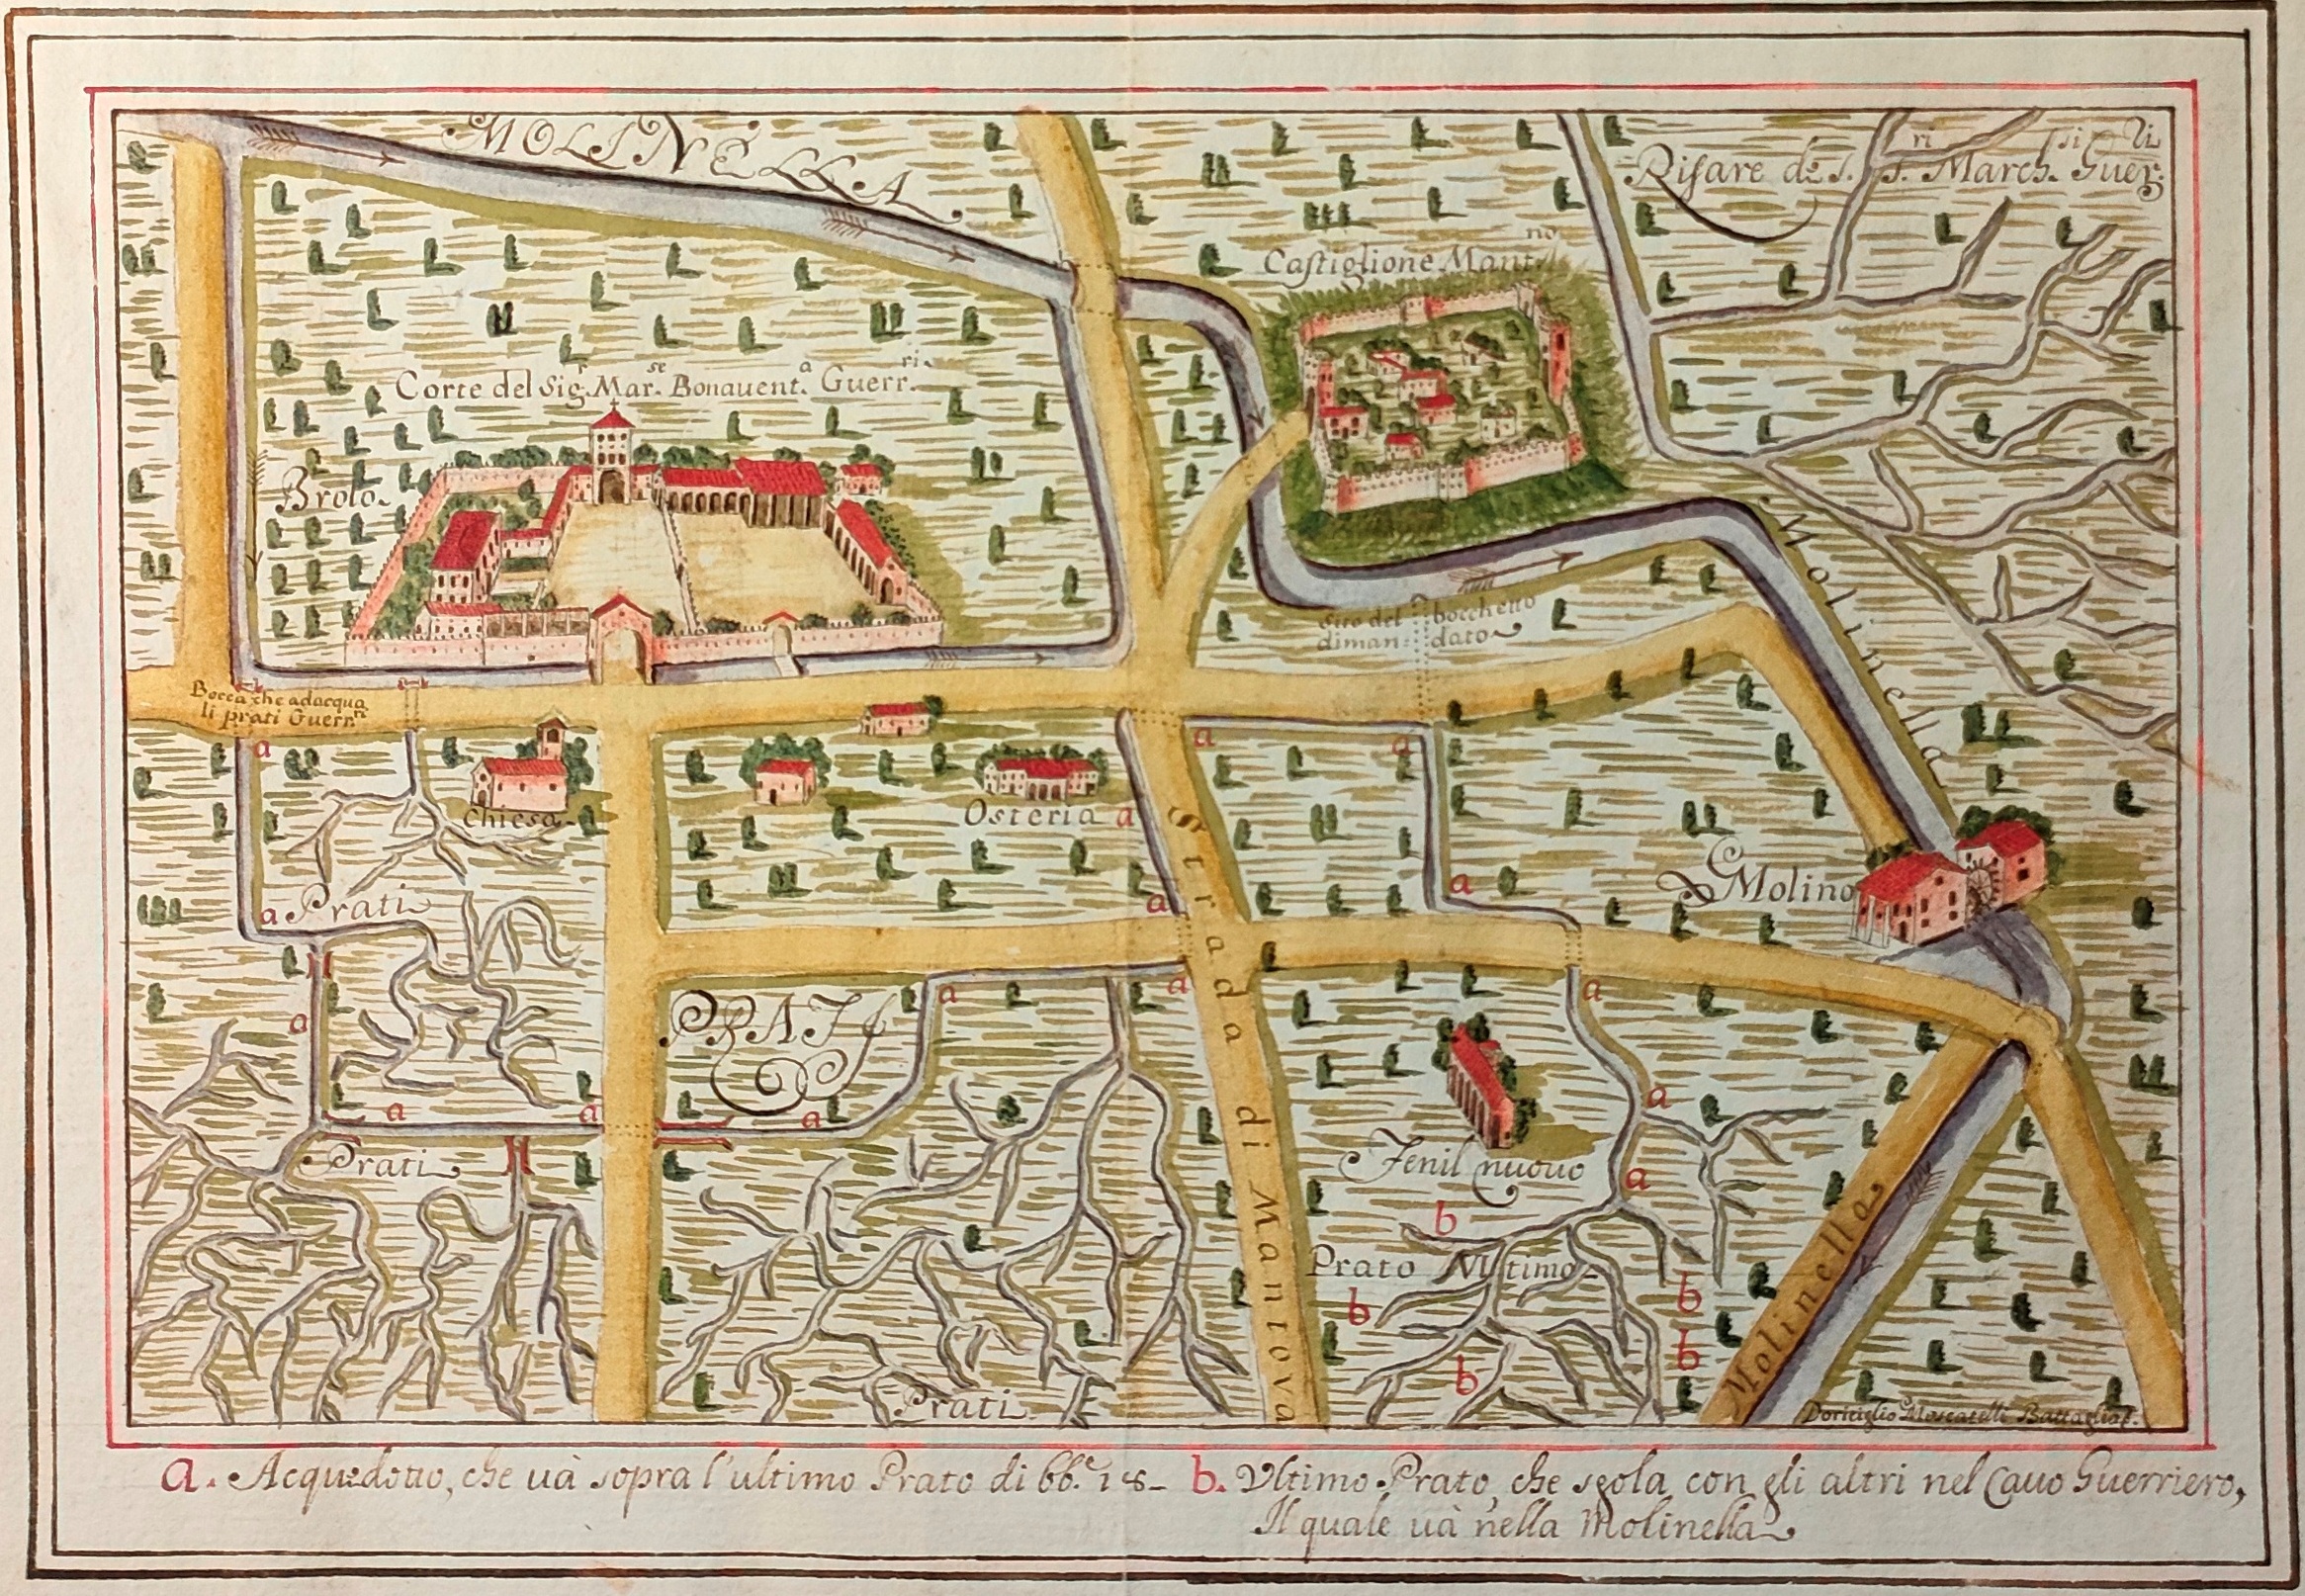 MOLINELLA.
Risare de S.ri S.ri March.si Guer.ri
Castiglione Mant.no
Corte del Sig.r Mar.se Bonauent.a Guerr.ri
Brolo.
Molinella
Sito del bocchetto
diman= dato
Bocca che adacqua
li prati Guerr.ri
a
a
a
Chiesa.
Osteria
a
Strada di Mantova
Molino
a
a
Prati
a
a
PRATI
a
a
a
a
a
a
a
a
Prati
Fenil nuovo
a
b
Prato Vltimo
b
b
b
b
Molinella
Prati
Doriciglio Moscatelli Battaglia f.
a. Acquedotto, che uà sopra l'ultimo Prato di bb.e 18- b. Vltimo Prato, che scola con gli altri nel Cauo Guerriero,
Il quale uà nella Molinella